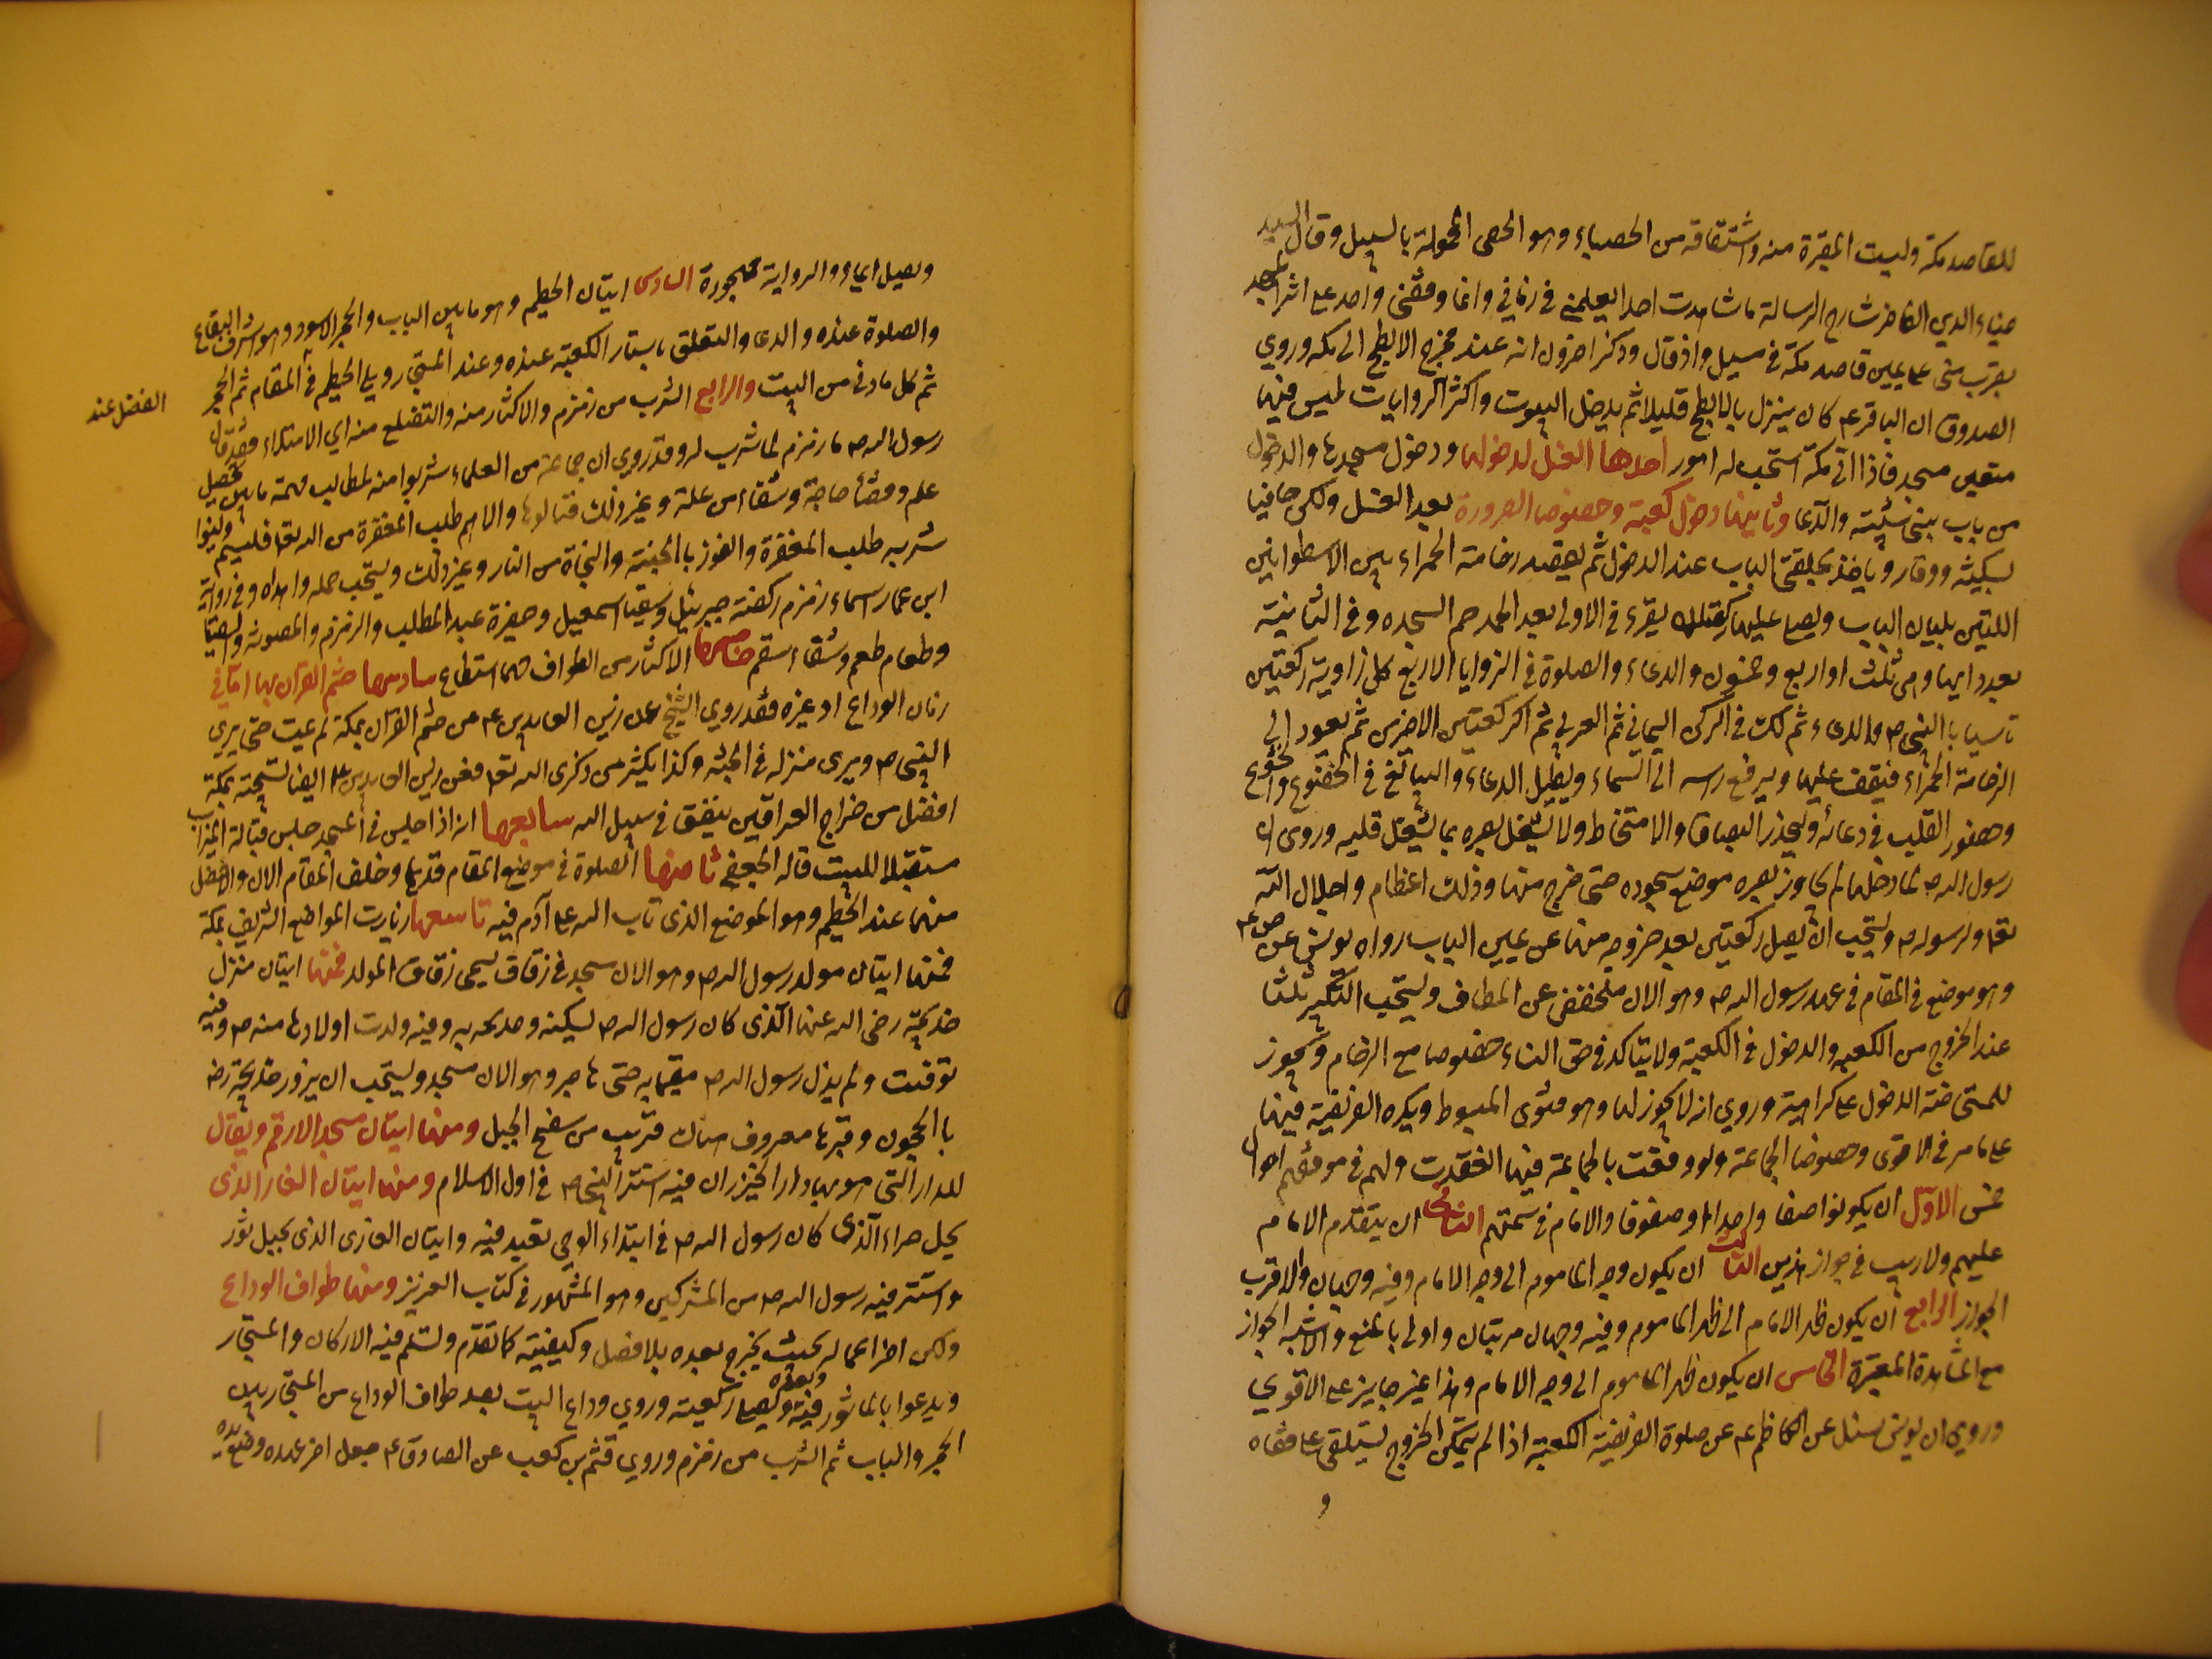 للقاصد مكة وليست المقبرة منه واشتقاقه من الحصباء وهو الحصى المحمولة بالسيل وقال السيد
ضياء الدين الفاخر شارح الرسالة ما شاهدت احدا يعلمني في زماني وانما وقفني واحد على اثر مسجد
بقرب منى على يمين قاصد مكة في مسيل واد قال وذكر اخرون انه عند مخرج الابطح الى مكه وروي
الصدوق ان الباقر ع كان ينزل بالابطح قليلا ثم يدخل البيوت واكثر الروايات ليس فيها
متعين مسجد فاذا اتى مكة استحب له امور احدها الغسل لدخولها ودخول مسجدها والدخول
من باب بني شيبه والدعا وثانيها دخول كعبة وخصوصا الصرورة بعد الغسل وليكن حافيا
بسكينه ووقار وياخذ بحلقتى الباب عند الدخول ثم يقصد رخامة الحمراء بين الاسطوانتين
اللتين يليان الباب ويصلي عليها ركعتين يقرء في الاولى بعد الحمد حم السجده وفي الثانية
بعدد ايها وهي ثلث او اربع وخمسون والدعاء والصلوة في الزوايا الاربع كل زاوية ركعتين
تاسيا بالنبي ص والدعاء ثم كك في الركن اليماني ثم الغربي ثم الركعتين الاخرين ثم يعود الى
الرخامة الحمراء فيقف عليها ويرفع راسه الى السماء ويطيل الدعاء ويبالغ في الخضوع والخشوع
وحضور القلب في دعائه وليحذر البصاق والامتخاط ولا يشغل بصره بما يشغل قلبه وروى ان
رسول الله ص لما دخلها لم يجاوز بصره موضع سجوده حتى خرج منها وذلك اعظام واجلال الله
تعالى ولرسوله ص ويستحب ان يصلي ركعتين بعد خروجه منها عن يمين الباب رواه يونس عن ص ع
وهو موضع في المقام في عهد رسول الله ص وهو الان منخفض عن المطاف ويستحب التكبير ثلثا
عند الخروج من الكعبه والدخول في الكعبة ولا يتاكد في حق النساء خصوصا مع الزحام ويجوز
للمستحاضة الدخول على كراهية وروي انه لا يجوز لها وهو فتوى المبسوط ويكره الفريضة فيها
على ما مر في الاقوى وخصوصا الجماعة ولو وقعت بالجماعة فيها انعقدت ولهم في موقفهم احوال
خمس الاول ان يكونوا صفا واحدا او صفوفا والامام في سمتهم الثاني ان يتقدم الامام
عليهم ولا ريب في جواز هذين الثالث ان يكون وجه الماموم الى وجه الامام وفيه وجهان والاقرب
الجواز الرابع ان يكون ظهر الامام الى ظهر الماموم وفيه وجهان مرتبان واولى بالمنع والاشبه الجواز
مع المشاهدة المعتبرة الخامس ان يكون ظهر الماموم الى وجه الامام وهذا غير جايز على الاقوي
وروي ان يونس سئل عن الكاظم ع عن صلوة الفريضة الكعبة اذا لم يتمكن الخروج يستلقى على قفاه
و
ويصلى ايماء والرواية مهجورة السادس اتيان الحطيم وهو ما بين الباب والحجر الاسود وهو اشرف البقاع
والصلوة عنده والدعا والتعلق باستار الكعبة عنده وعند المستجار ويلي الحطيم في المقام ثم الحجر
ثم كل ما دنى من البيت والرابع الشرب من زمزم والاكثار منه والتضلع منه اي الامتلاء فقد قال
الفضل عند
رسول الله ص ماء زمزم لما شرب له وقد روي ان جماعة من العلماء شربوا منه لمطالب مهمة ما بين تحصيل
علم وقضاء حاجة وشفاء من علة وغير ذلك فنالوها والاهم طلب المغفرة من الله تعالى فليسم ولينوا
بشربه طلب المغفرة والفوز بالجنة والنجاة من النار وغير ذلك ويستحب حمله واهداه وفي رواية
ابن عمار اسماء زمزم ركضة جبرئيل وسقيا اسمعيل وحفيرة عبد المطلب والزمزم والمصونة والسقيا
وطعام طعم وشفاء سقم خامسها الاكثار من الطواف مهما استطاع سادسها ختم القران بها اما في
زمان الوداع او غيره فقد روي الشيخ عن زين العابدين ع من ختم القران بمكة لم يمت حتى يرى
النبى ص ويرى منزله في الجنه وكذا يكثر من ذكرى الله تعالى فعن زين العابدين ع ايضا تسبيحته بمكة
افضل من خراج العراقين ينفق في سبيل الله سابعها انه اذا جلس في المسجد جلس قبالة الميزاب
مستقبلا للبيت قاله الجعفي ثامنها الصلوة في موضع المقام قديما وخلف المقام الان والافضل
منها عند الحطيم وهو الموضع الذى تاب الله على آدم فيه تاسعها زيارت المواضع الشريف بمكة
فمنها اتيان مولد رسول الله ص وهو الان مسجد في زقاق يسمى زقاق المولد فمنها اتيان منزل
خديجة رضى الله عنها الذى كان رسول الله ص يسكنه وخديجه به وفيه ولدت اولادها منه ص وفيه
توفيت ولم يزل رسول الله ص مقيما به حتى هاجر وهو الان مسجد ويستحب ان يزور خديجة رض
بالحجون وقبرها معروف هناك قريب من سفح الجبل ومنها اتيان مسجد الارقم ويقال
للدار التى هو بها دار الخيزران فيه استتر النبي ص في اول الاسلام ومنها اتيان الغار الذى
بجبل حراء الذى كان رسول الله ص في ابتداء الوحي يتعبد فيه واتيان الغار الذى بجبل ثور
واستتر فيه رسول الله ص من المشركين وهو المشهور في كتاب العزيز ومنها طواف الوداع
وليكن اخر اعماله بحيث يخرج بعده بلا فصل وكيفيته كما تقدم ويستلم فيه الاركان والمستجار
ويدعوا بالماثور فيه وبعده ويصلى ركعتيه وروي وداع البيت بعد طواف الوداع من المستجار بين
الحجر والباب ثم الشرب من زمزم وروي قثم بن كعب عن الصادق ع جعل اخر عهده وضع يده